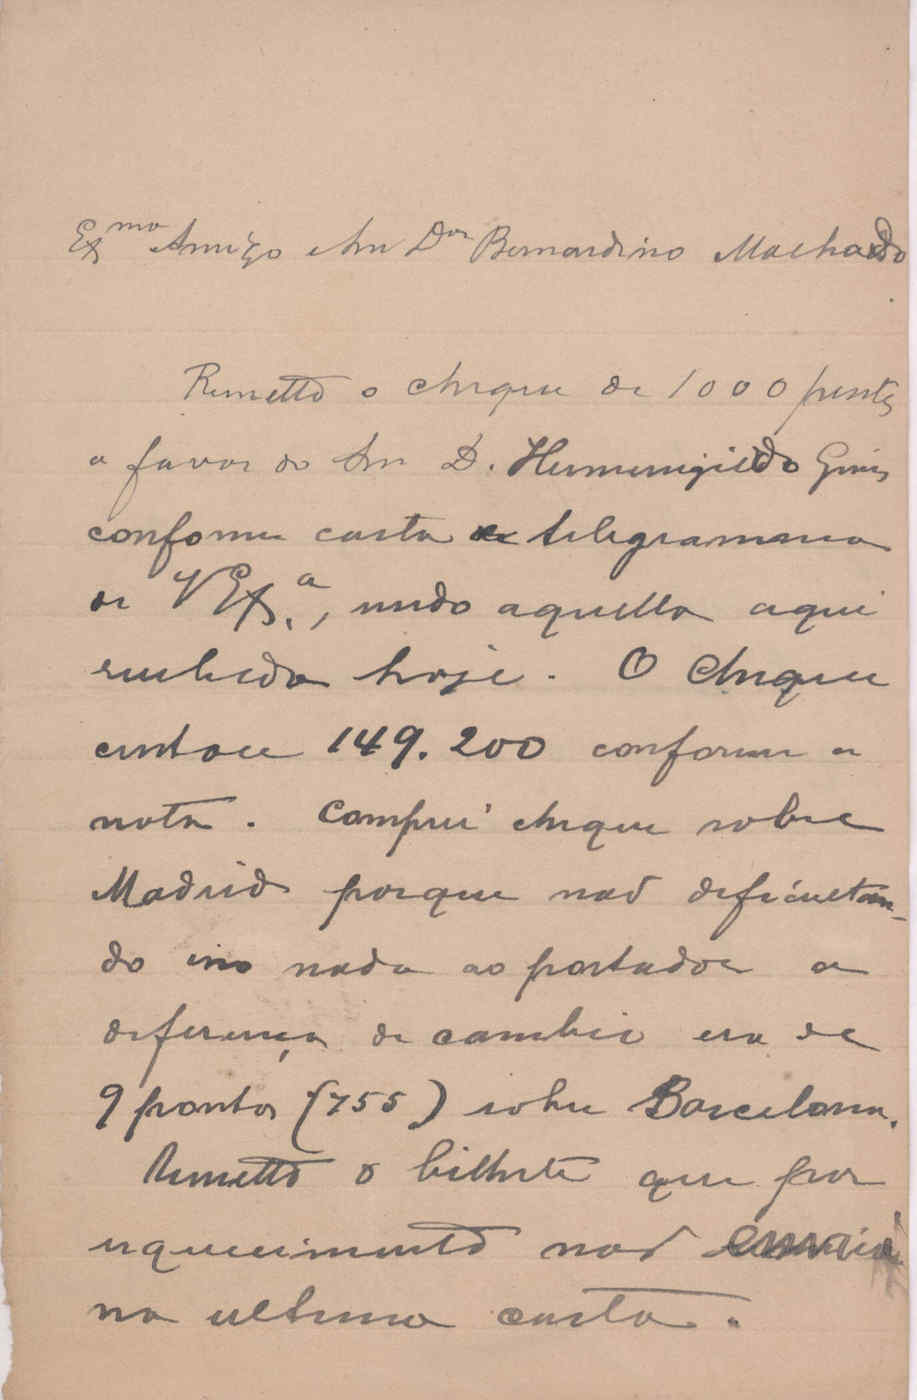 Exmo Amigo e Snr Dor Bernardino Machado
Remetto o cheque de 1000 pesetas
a favor do Snr D. Hermenigildo Giner
conforme carta e telegramma
de V Exa., sendo aquella aqui
recebida hoje. O cheque
custou 149.200 conforme a
nota. Comprei cheque sobre
Madrid porque não deficultan-
do isso nada ao portador a
deferença de cambio era de
9 pontos (755) sobre Barcelona.
Remetto o bilhete que por
esquecimento não enviei
na ultima carta.